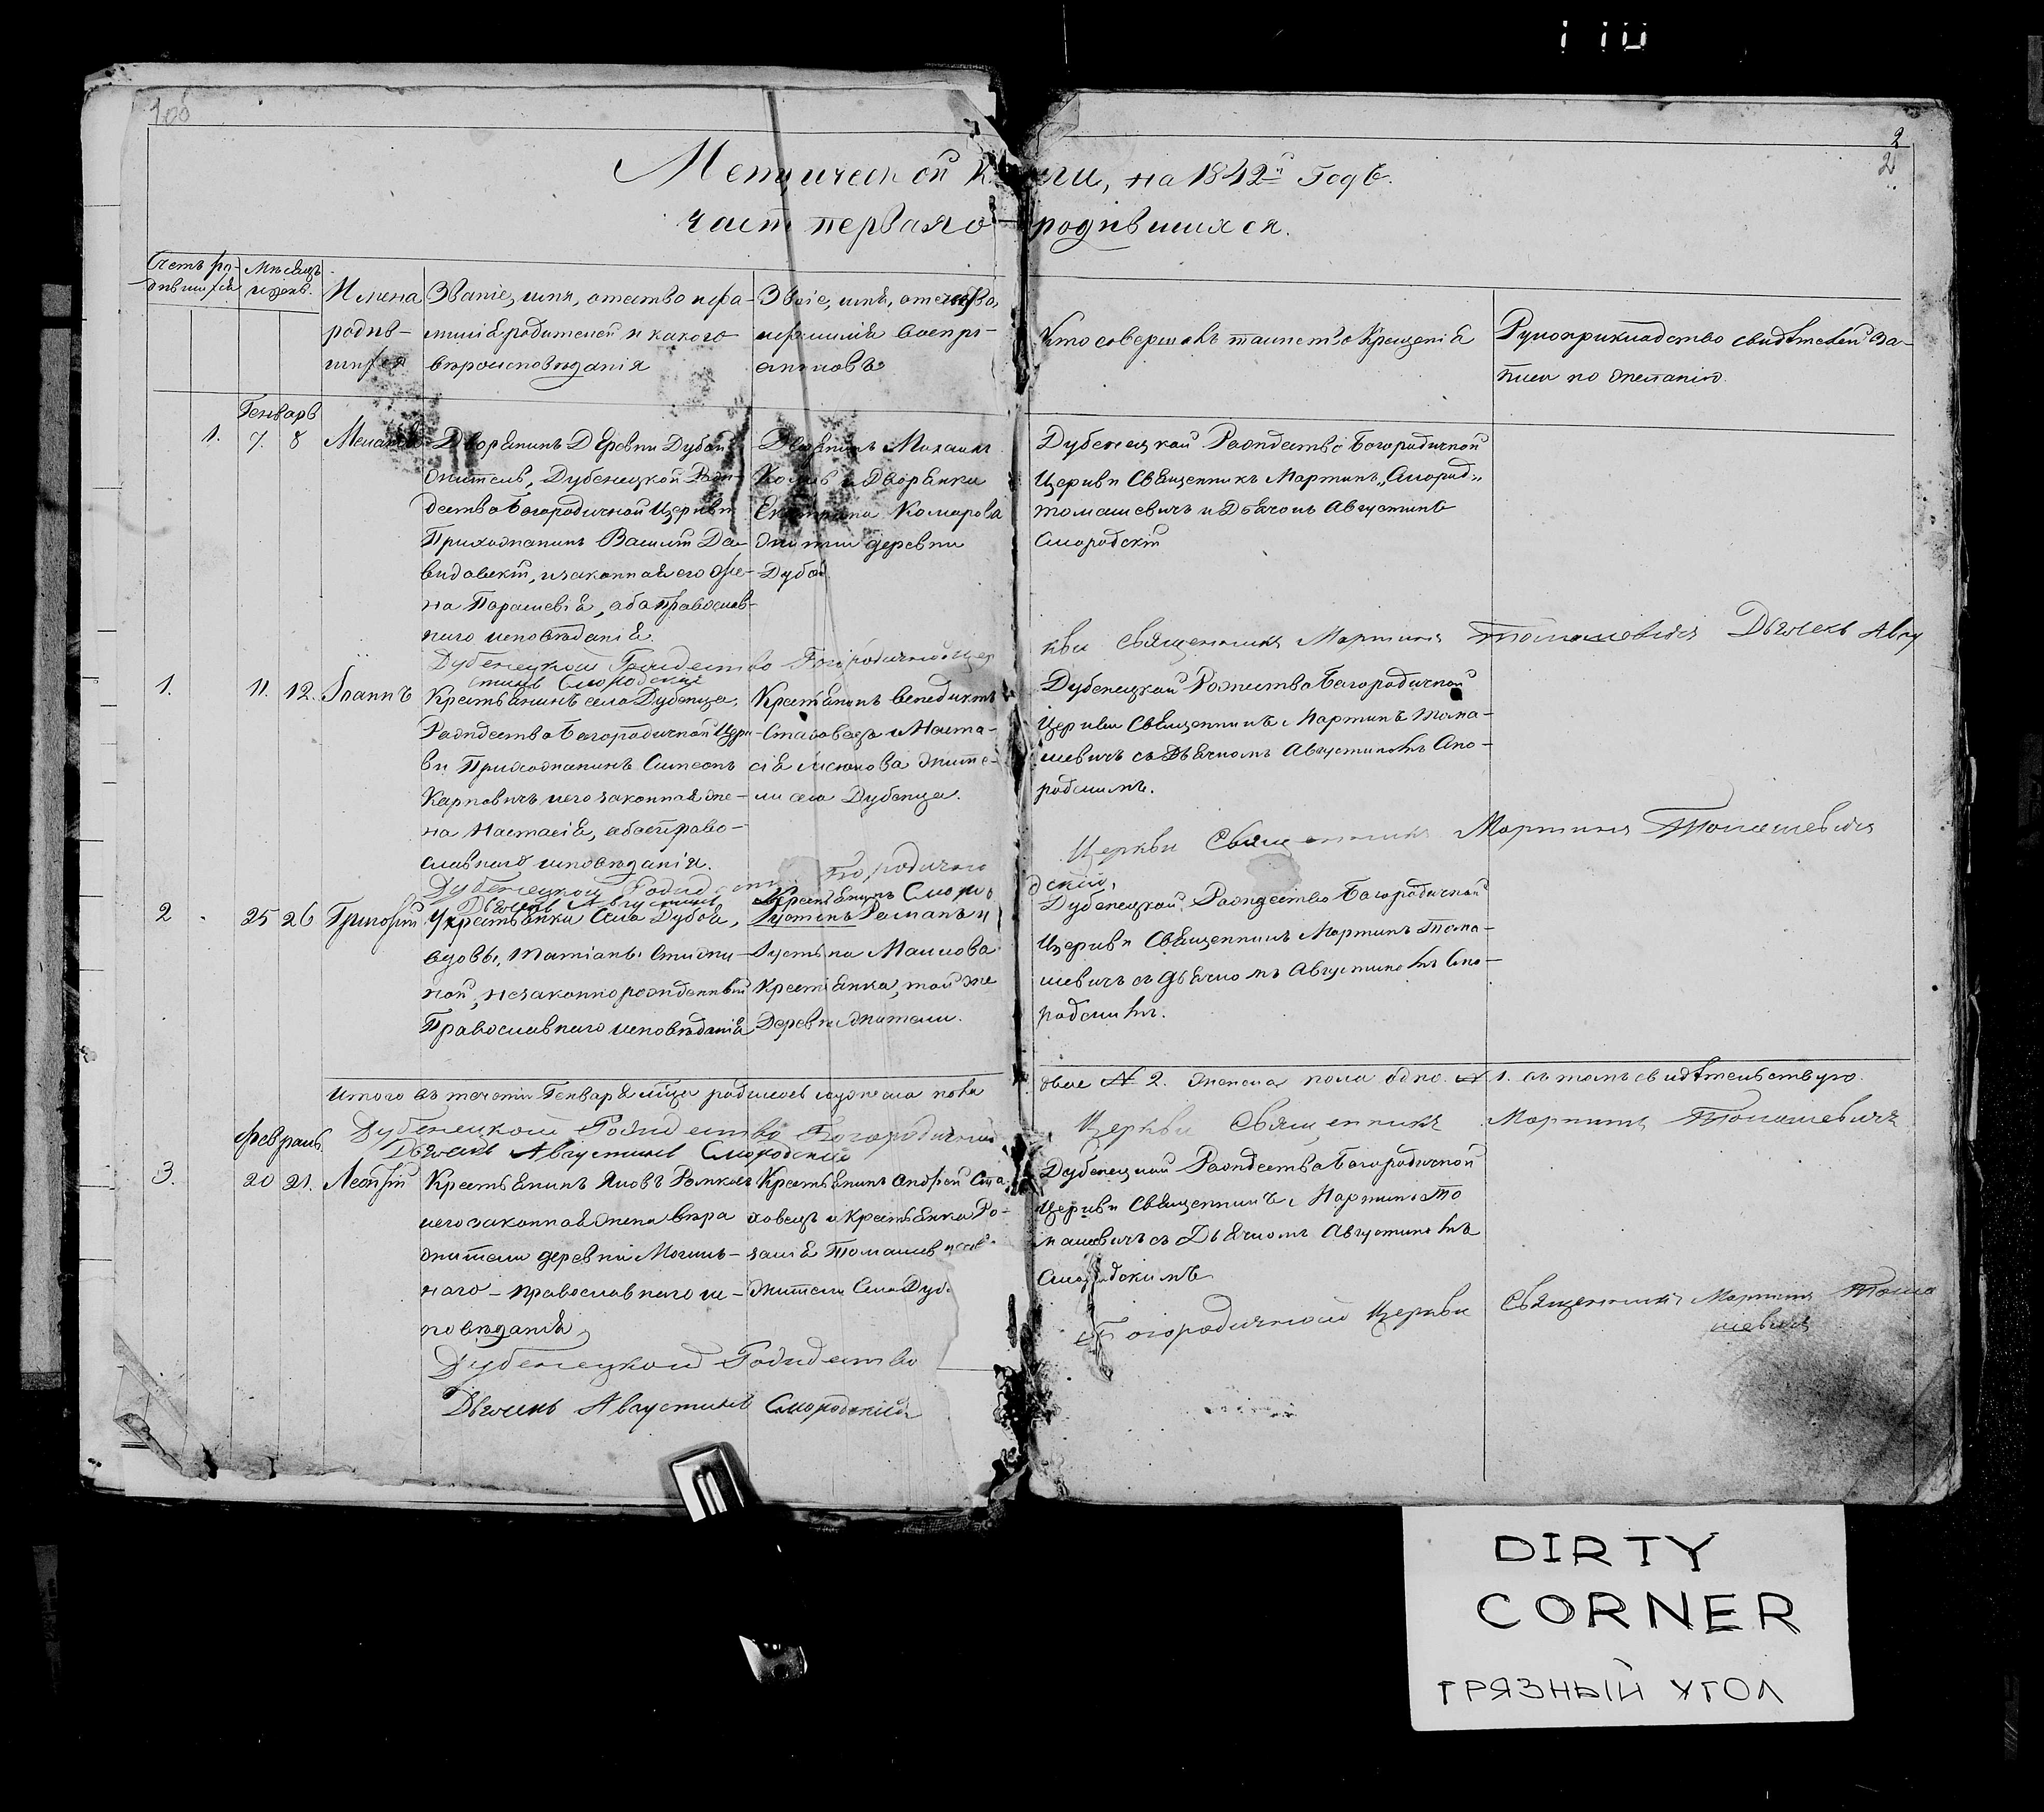 100
2
2
Метрической К ги, на 1842й Годъ.
част первая о родившихся.
Счетъ ро-
дившихся
Мѣсяцъ
и день.
Имена
родив-
шихся
Званіе, имя, отество и фа-
милія родителей и какого
вѣроисповѣданія
Званіе, имя, отество,
и фамилія воспрі-
емниковъ
Кто совершалъ таинство Крещенія
Рукоприкладство свидѣтелей за-
писи по желанію.
Генварь
1. 7. 8
Дворянинъ Деревни Дубой
житель, Дубенецкой Рож-
дество Богородичной Церкви
Прихожанинъ Василій Да-
видовскій, и законная его же-
на Парасковія, оба православ-
наго исповѣданія.
Дворянинъ Михаилъ
и Дворянка
Екатерина Комарова
жители деревни
Дубой
Дубенецкой Рождество Богородичной
Церкви Священникъ Мартинъ „Смород„
томашевичъ и Дьячокъ Августинъ
Смородскій
Дубенецкой Рождество Богородичной Цер
кви Священникъ Мартинъ Томашевичъ Дьячекъ Авгу
стинъ Смородскій
1. 11. 12. Іоаннъ
Крестьянинъ села Дубенца,
Рождество Богородичной Церк-
ви Прихожанинъ Симеонъ
Карповичъ и его законная же-
на Настасія, оба право-
славнаго исповѣданія.
Крестьянинъ Венедиктъ
Стаховецъ и Наста-
сія жите-
ли села Дубенца.
Дубенецкой Рожества Богородичной
Церкви Священникъ Мартинъ Тома-
шевичъ съ Дьячкомъ Августиномъ Смо-
родскимъ.
Дубенецкой Рождество Богородично
Церкви Священникъ Мартинъ Томашевичъ
Дьячекъ Августинъ Сморо
дскій,
2 25 26 Григорій
У крестьянки Села Дубоя,
вдовы, Татіаны
ной, незаконнорожденный
Православнаго исповѣданія
Крестьянинъ
Романъ и
Крестьянка, той же
Деревни жители.
Дубенецкой Рождество Богородичной
Церкви Священникъ Мартинъ Тома-
шевичъ съ дьячкомъ Августиномъ Смо-
родскимъ.
Итого въ теченіи Генваря мѣсца родилось мужеска пола
двое № 2. женска пола одно. № 1. въ томъ свидѣтельствую.
Дубенецкой Рождество Богородичной
Церкви Священникъ Мартинъ Томашевичъ
Дьячекъ Августинъ Смородскій
Февраль
3. 20 21. Леонтій
Крестьянинъ Яковъ
и его законная жена Вера
жители деревни
наго - православнаго ис-
повѣданія
Крестьянинъ Андрей Ста
ховецъ и Крестьянка Ро-
залія
жители Села Дуб.
Дубенецкой Рождества Богородичной
Церкви Священникъ Мартинъ То
машевичъ съ Дьячкомъ Августиномъ
Смородскимъ
Дубенецкой Рождество
Богородичной Церкви Священникъ Мартинъ Тома
шевичъ
Дьячекъ Августинъ Смородскій
DIRTY
CORNER
ГРЯЗНЫЙ УГОЛ